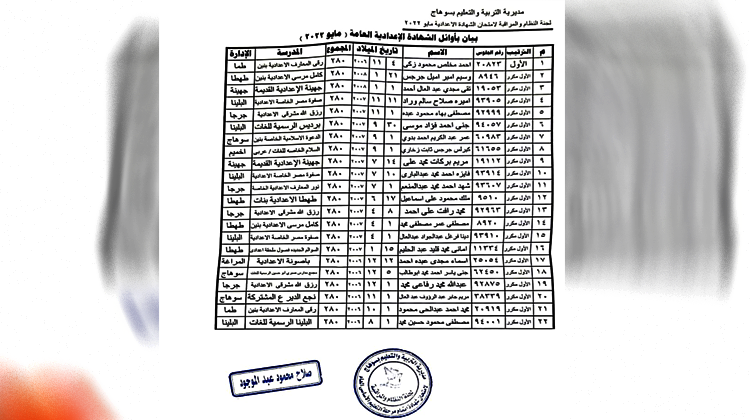 مديرية التربية والتعليم بسوهاج
لجنة النظام والمراقبة لامتحان الشهادة الاعدادية مايو ٢٠٢٢
بيان بأوائل الشهادة الإعدادية العامة ( مايو ٢٠٢٢ )
م الترتيب رقم الجلوس الاسم تاريخ الميلاد المجموع المدرسة الإدارة
١ الأول ٢٠٨٢٣ احمد مخلص محمود زكى ٤ ١١ ٢٠٠٦ ٢٨٠ رقى المعارف الاعدادية بنين طما
٢ الأول مكرر ٨٩٤٦ وسيم امير اميل جرجس ٢١ ١ ٢٠٠٨ ٢٨٠ كامل مرسى الاعدادية بنين طهطا
٣ الأول مكرر ١٩٠٥٣ تقى مجدى عبد العال أحمد ١ ١ ٢٠٠٨ ٢٨٠ جهينة الإعدادية القديمة جهينة
٤ الأول مكرر ٩٣٩٠٥ اميره صلاح سالم وراد ١١ ١١ ٢٠٠٧ ٢٨٠ صفوة مصر الخاصة الاعدادية البلينا
٥ الأول مكرر ٩٢٩٩٩ مصطفى بهاء محمود عبده ١ ١١ ٢٠٠٧ ٢٨٠ رزق الله مشرقى الاعدادية جرجا
٦ الأول مكرر ٩٤٠٥٧ جنى احمد فؤاد موسى ٣٠ ٩ ٢٠٠٧ ٢٨٠ برديس الرسمية للغات البلينا
٧ الأول مكرر ٦٠٩٨٣ عمر عبد الكريم احمد بدوى ١ ٩ ٢٠٠٧ ٢٨٠ الدعوة الاسلامية الخاصة بنين سوهاج
٨ الأول مكرر ٦١٦٥٥ كيرلس جرجس ثابت زخارى ١ ٩ ٢٠٠٧ ٢٨٠ السلام الخاصه للغات / عربى اخميم
٩ الأول مكرر ١٩١١٢ مريم بركات محمد على ١٤ ٧ ٢٠٠٧ ٢٨٠ جهينة الإعدادية القديمة جهينة
١٠ الأول مكرر ٩٣٩١٤ فايزه احمد محمد عبدالبارى ١٠ ٧ ٢٠٠٧ ٢٨٠ صفوة مصر الخاصة الاعدادية البلينا
١١ الأول مكرر ٩٣٦٠٧ شهد احمد محمد عبدالمنعم ١ ٧ ٢٠٠٧ ٢٨٠ نور المعارف الاعدادية الخاصة جرجا
١٢ الأول مكرر ٩٥١٠ ملك محمود على اسماعيل ١٧ ٦ ٢٠٠٧ ٢٨٠ طهطا الاعدادية بنات طهطا
١٣ الأول مكرر ٩٢٩٦٣ محمد رافت على احمد ٨ ٤ ٢٠٠٧ ٢٨٠ رزق الله مشرقى الاعدادية جرجا
١٤ الأول مكرر ٨٩٢٠ مصطفى عمر مصطفى محمد ١ ٤ ٢٠٠٧ ٢٨٠ كامل مرسى الاعدادية بنين طهطا
١٥ الأول مكرر ٩٣٩١٠ دينا فرغل عبدالجواد عبدالعال ١ ٤ ٢٠٠٧ ٢٨٠ صفوة مصر الخاصة الاعدادية البلينا
١٦ الأول مكرر ١١٣٣٤ امانى محمد فليد عبد الحليم ١٥ ١ ٢٠٠٧ ٢٨٠ السوالم الجديده فصول ملحقة اعدادى طهطا
١٧ الأول مكرر ٢٥٠٥٤ اسماء مجدى عبده احمد ١٢ ١٢ ٢٠٠٦ ٢٨٠ باصونة الاعدادية المراغة
١٨ الأول مكرر ٦٢٤٥٠ جنى ياسر احمد محمد ابوطالب ٥ ١٢ ٢٠٠٦ ٢٨٠ سوهاج
١٩ الأول مكرر ٩٢٨٧٥ عبدالله محمد رفاعى محمد ١ ١٢ ٢٠٠٦ ٢٨٠ رزق الله مشرقى الاعدادية جرجا
٢٠ الأول مكرر ٣٨٣٣٩ مريم جابر عبد الرؤوف عبد العال ١ ١١ ٢٠٠٦ ٢٨٠ نجع الدير ع المشتركة سوهاج
٢١ الأول مكرر ٢٠٩١٩ محمد احمد عبدالحى محمود ١ ١٠ ٢٠٠٦ ٢٨٠ رقى المعارف الاعدادية بنين طما
٢٢ الأول مكرر ٩٤٠٠١ مصطفى محمود حسين محمد ١ ٨ ٢٠٠٦ ٢٨٠ البلينا الرسمية للغات البلينا
صلاح محمود عبد الموجود
مديرية التربية والتعليم بسوهاج
لجنة النظام والمراقبة